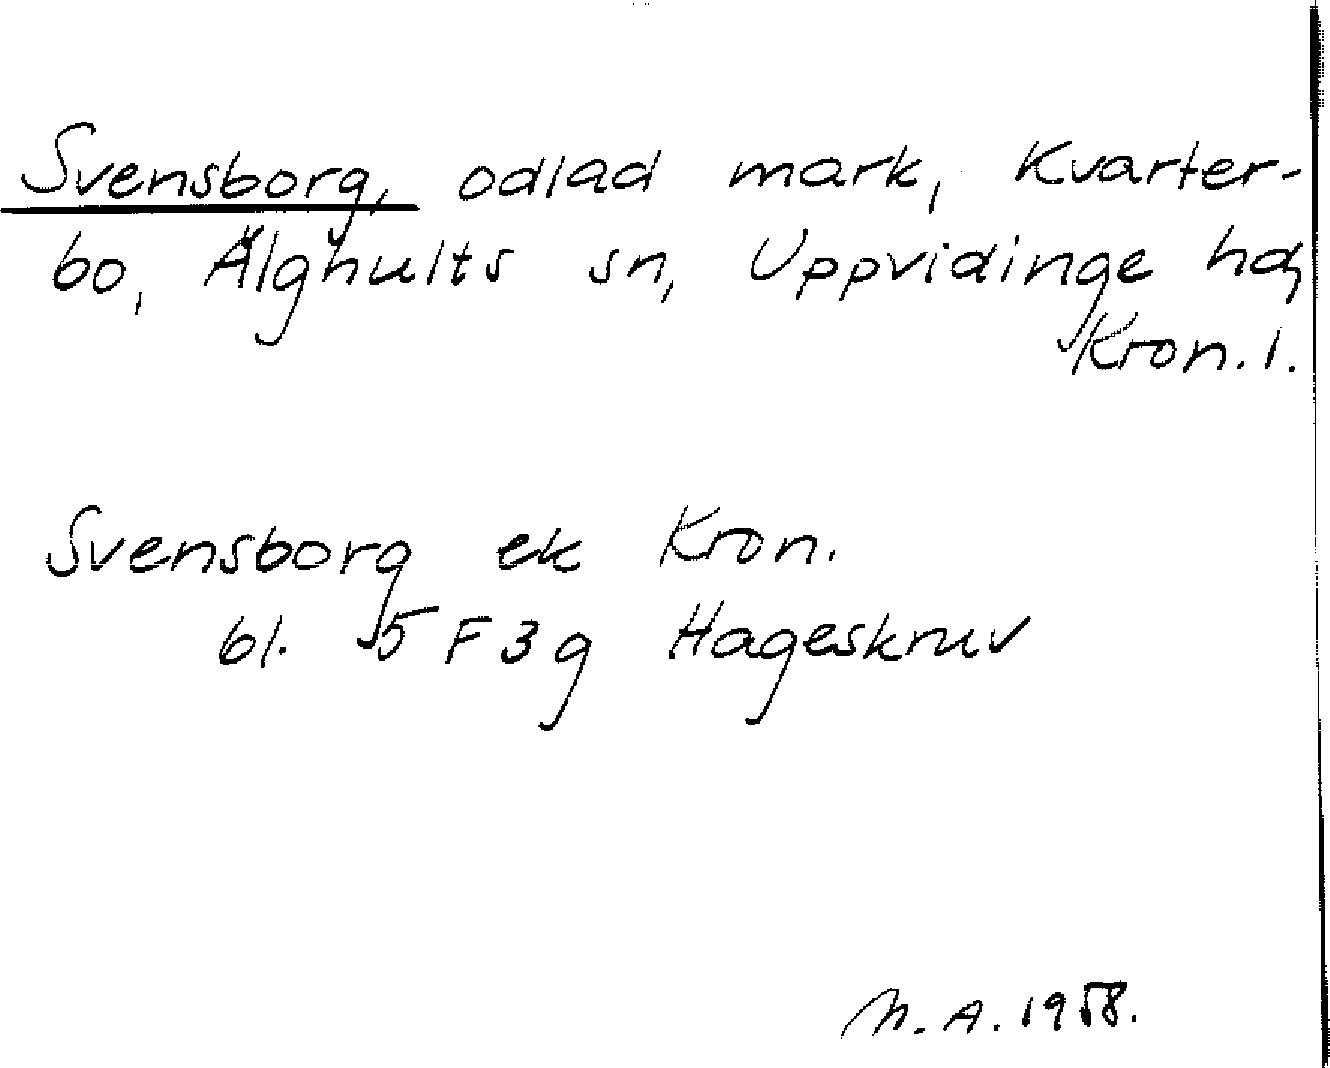 Svensborg, odlad mark, Kvarter-
bo, Älghults sn, Uppvidinge hd,
Kron. l.
Svensborg ek Kron.
bl. 5 F 3 g Hageskruv
M. A. 1958.